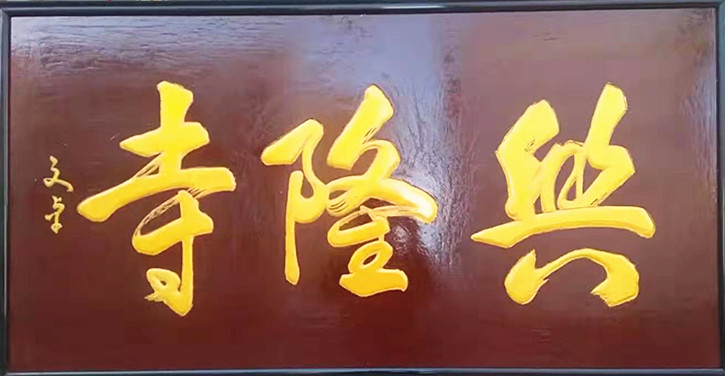 興隆寺
文卓